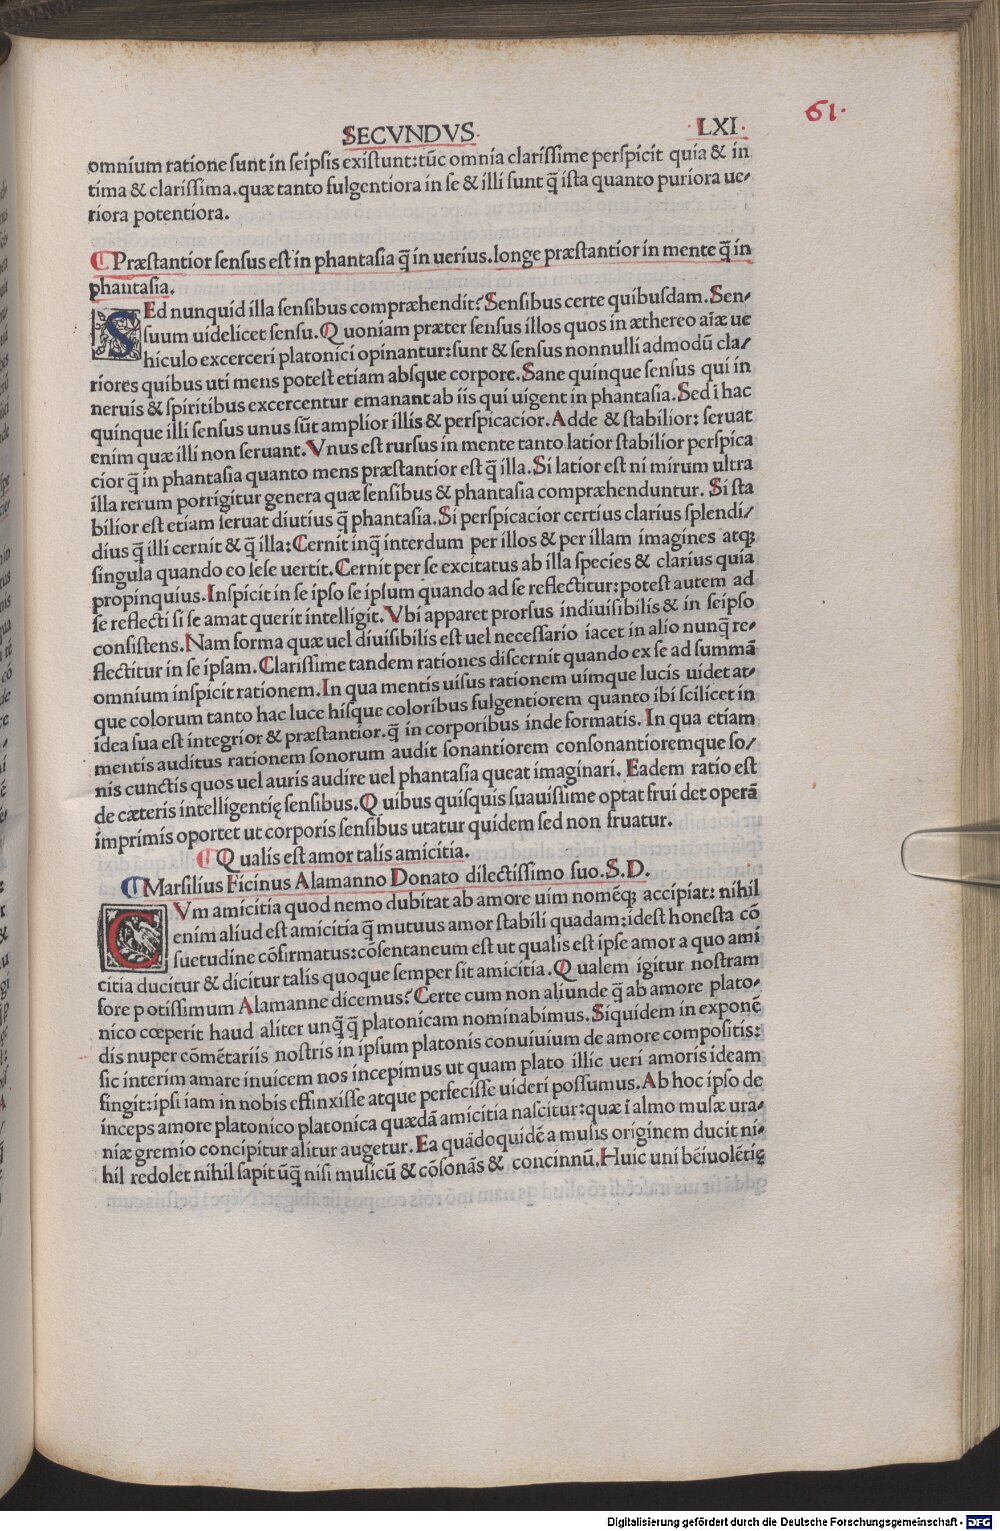 61.
SECVNDVS. LXI.
omnium ratione ſunt in ſeipſis exiſtunt:tūc omnia clariſſime perſpicit quia & in
tima & clariſſima.quæ tanto fulgentiora in ſe & illi ſunt q̄ iſta quanto puriora ue⸗
riora potentiora.
¶Præſtantior ſenſus eſt in phantaſia q̄ in uerius.longe præſtantior in mente q̄ in
phantaſia.
SEd nunquid illa ſenſibus compræhendit?Senſibus certe quibuſdam.Sen⸗
ſuum uidelicet ſenſu.Quoniam præter ſenſus illos quos in æthereo aīæ ue
hiculo excerceri platonici opinantur:ſunt & ſenſus nonnulli admodū cla/
riores quibus uti mens poteſt etiam abſque corpore.Sane quinque ſenſus qui in
neruis & ſpiritibus excercentur emanant ab iis qui uigent in phantaſia.Sed ī hac
quinque illi ſenſus unus sūt amplior illis & perſpicacior.Adde & ſtabilior: ſeruat
enim quæ illi non ſeruant.Vnus eſt rurſus in mente tanto latior ſtabilior perſpica
cior q̄ in phantaſia quanto mens præſtantior eſt q̄ illa.Si latior eſt ni mirum ultra
illa rerum porrigitur genera quæ ſenſibus & phantaſia compræhenduntur. Si ſta
bilior eſt etiam ſeruat diutius q̄ phantaſia.Si perſpicacior certius clarius ſplendi/
dius q̄ illi cernit & q̄ illa:Cernit inq̄ interdum per illos & per illam imagines atqꝫ
ſingula quando eo ſeſe uertit.Cernit per ſe excitatus ab illa ſpecies & clarius quia
propinquius.Inſpicit in ſe ipſo ſe ipſum quando ad ſe reflectitur:poteſt autem ad
ſe reflecti ſi ſe amat querit intelligit.Vbi apparet prorſus indiuiſibilis & in ſeipſo
conſiſtens.Nam forma quæ uel diuiſibilis eſt uel neceſſario iacet in alio nunq̄ re⸗
flectitur in ſe ipſam.Clariſſime tandem rationes diſcernit quando ex ſe ad ſummā
omnium inſpicit rationem.In qua mentis uiſus rationem uimque lucis uidet at⸗
que colorum tanto hac luce hiſque coloribus fulgentiorem quanto ibi ſcilicet in
idea ſua eſt integrior & præſtantior.q̄ in corporibus inde formatis. In qua etiam
mentis auditus rationem ſonorum audit ſonantiorem conſonantioremque ſo/
nis cunctis quos uel auris audire uel phantaſia queat imaginari. Eadem ratio eſt
de cæteris intelligentię ſenſibus.Quibus quiſquis ſuauiſſime optat frui det operā
imprimis oportet ut corporis ſenſibus utatur quidem ſed non fruatur.
¶Qualis eſt amor talis amicitia.
¶Marſilius Ficinus Alamanno Donato dilectiſſimo ſuo.S.D.
CVm amicitia quod nemo dubitat ab amore uim nomēqꝫ accipiat: nihil
enim aliud eſt amicitia q̄ mutuus amor ſtabili quadam:ideſt honeſta cō
ſuetudine cōfirmatus:cōſentaneum eſt ut qualis eſt ipſe amor a quo ami
citia ducitur & dicitur talis quoque ſemper ſit amicitia.Qualem igitur noſtram
fore potiſſimum Alamanne dicemus?Certe cum non aliunde q̄ ab amore plato⸗
nico cœperit haud aliter unq̄ q̄ platonicam nominabimus.Siquidem in exponē
dis nuper cōmētariis noſtris in ipſum platonis conuiuium de amore compoſitis:
ſic interim amare inuicem nos incepimus ut quam plato illic ueri amoris ideam
fingit:ipſi iam in nobis effinxiſſe atque perfeciſſe uideri poſſumus.Ab hoc ipſo de
inceps amore platonico platonica quædā amicitia naſcitur:quæ ī almo muſæ urā⸗
niæ gremio concipitur alitur augetur.Ea quādoquidē a muſis originem ducit ni⸗
hil redolet nihil ſapit ūq̄ niſi muſicū & cōſonās & concinnū.Huic uni bēiuolētię
Digitalisierung gefördert durch die Deutsche Forschungsgemeinschaft - DFG